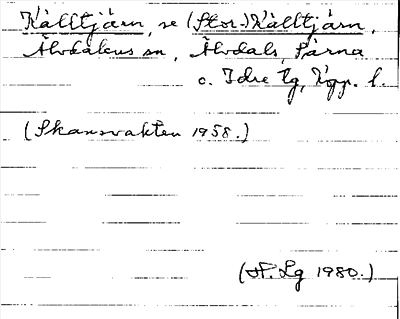 Källtjärn, se (Stor-)Källtjärn,
Älvdalens sn, Älvdals, Särna
o. Idre tg, Kopp. l.
(Skansvakten 1958.)
(H. Lg 1980.)